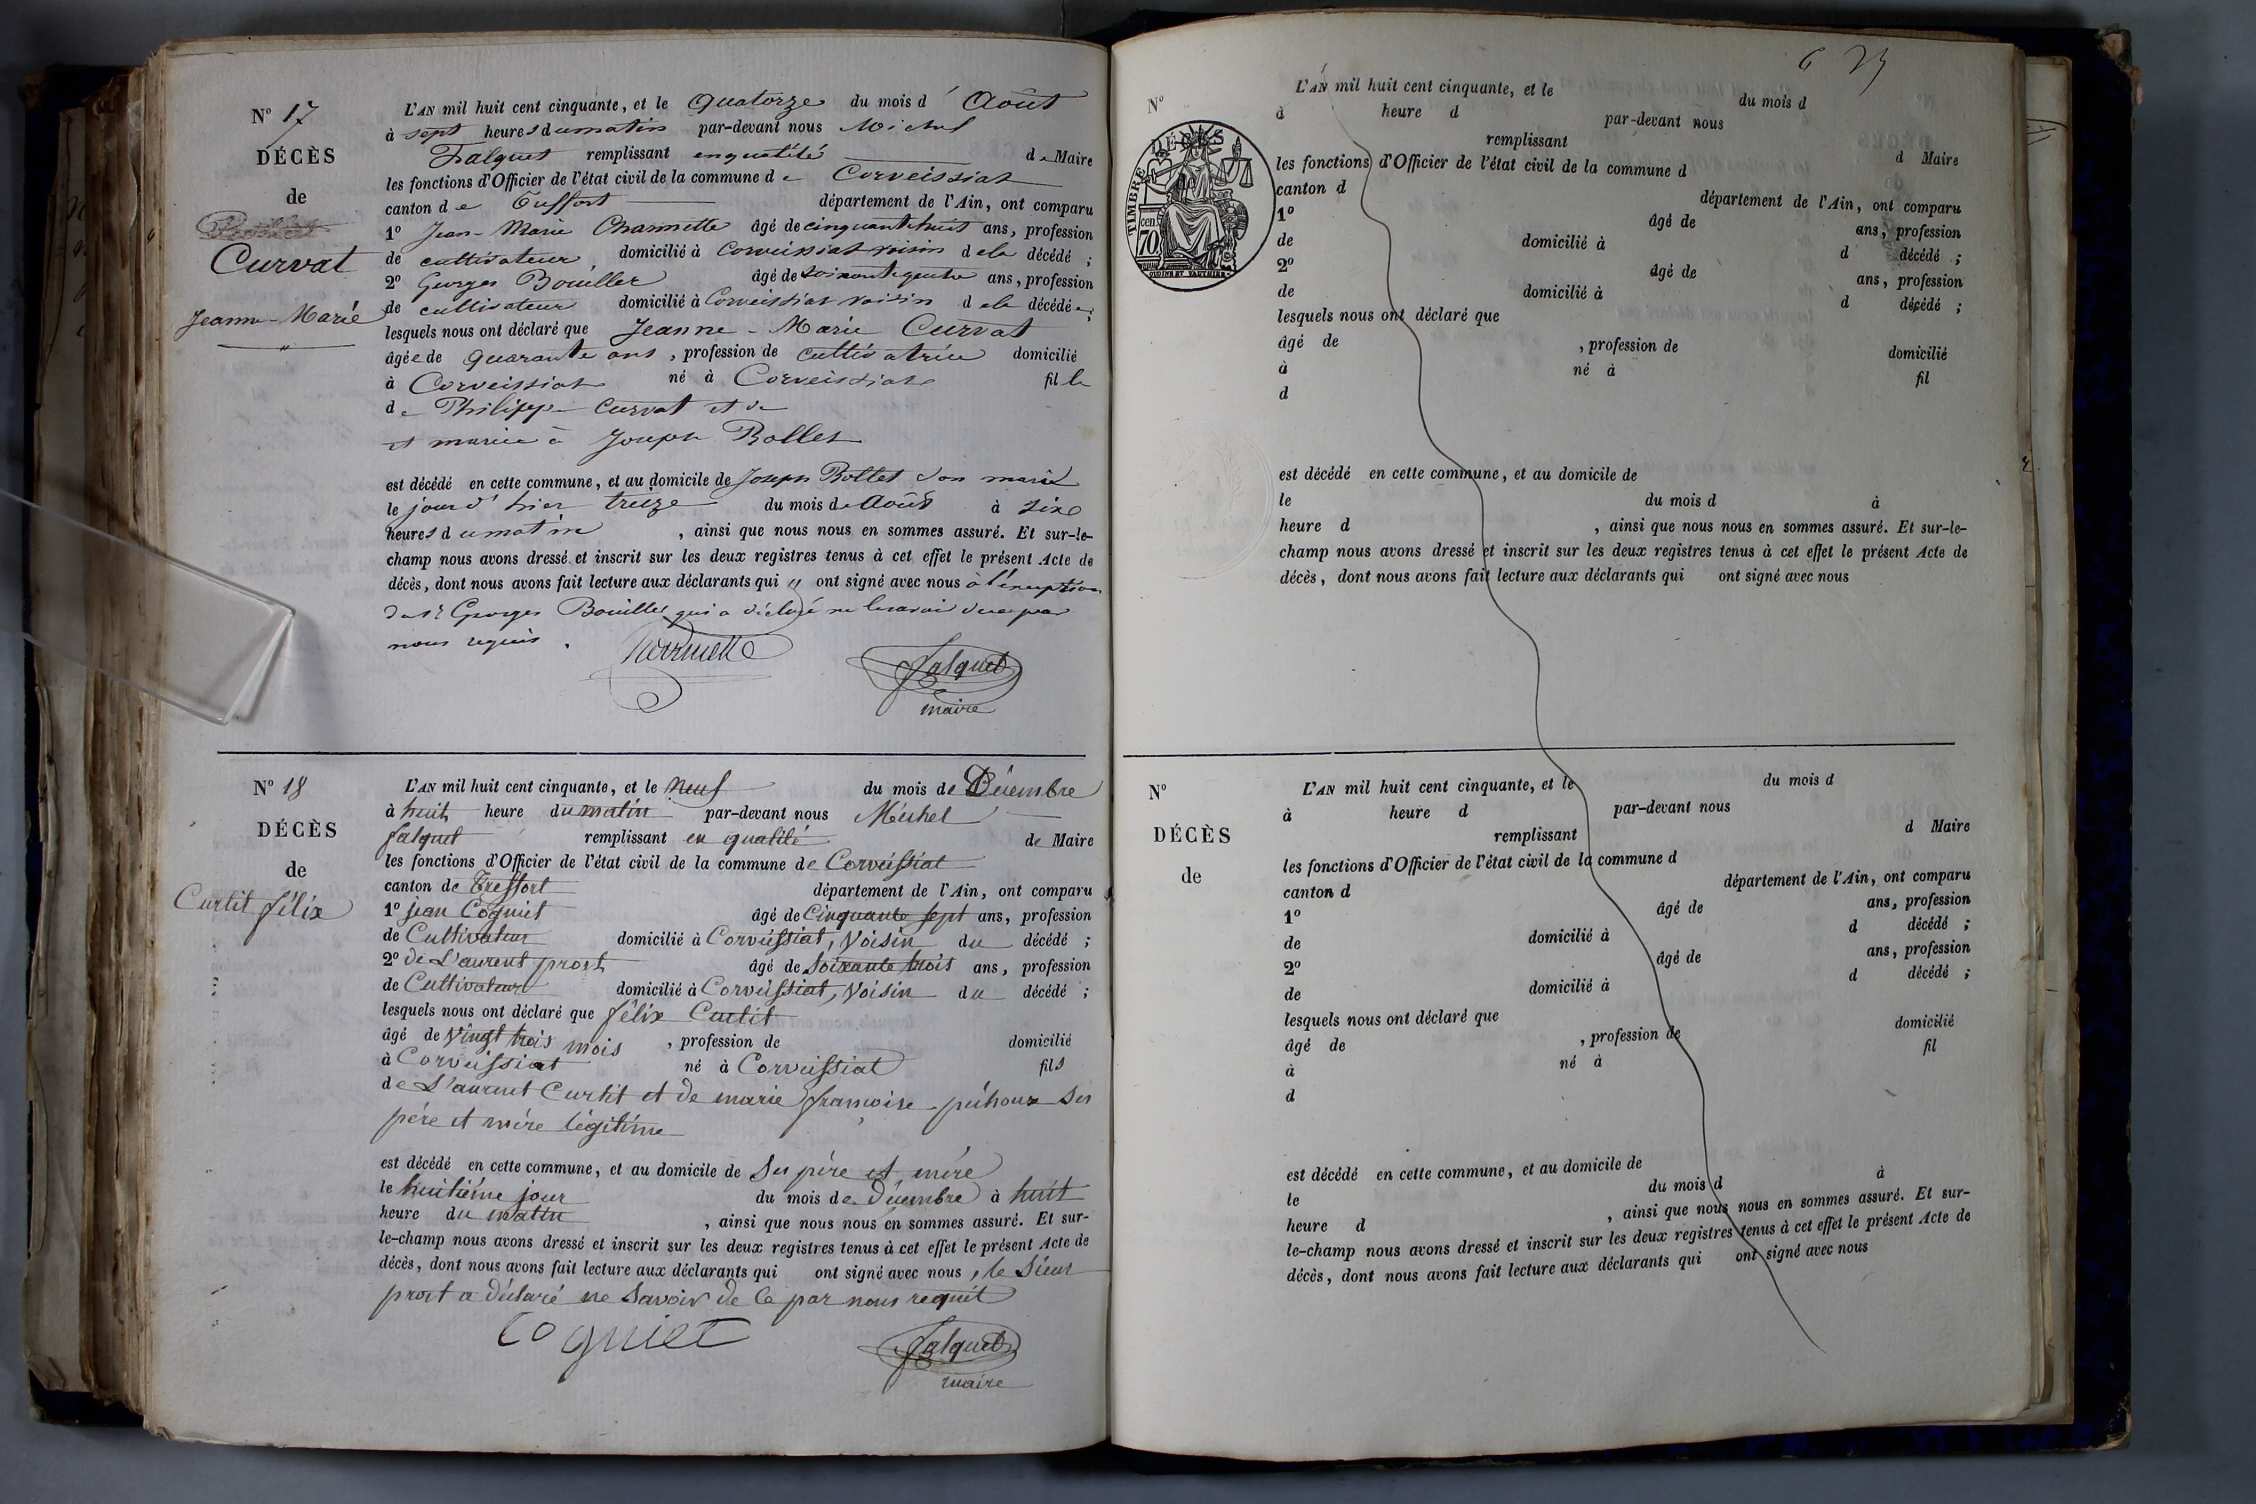 N° 17
DÉCÈS
de
Curvat
Jeanne-Marie
L'AN mil huit cent cinquante, et le quatorze du mois d' Août
à sept heures du matin par-devant nous Michel
Falquet remplissant en qualité de Maire
les fonctions d'Officier de l'état civil de la commune de Corveissiat
canton de Treffort département de l'Ain, ont comparu
1° Jean-Marie âgé de cinquante huit ans, profession
de cultivateur, domicilié à Corveissiat voisin de la décédé ;
2° Georges Bouiller âgé de ans, profession
de cultivateur domicilié à Corveissiat voisin de la décédée ;
lesquels nous ont déclaré que Jeanne-Marie Curvat
âgée de quarante ans, profession de cultivatrice domicilié
à Corveissiat né à Corveissiat fille
de Philippe Curvat et de
et mariée à Joseph Bollet
est décédé en cette commune, et au domicile de Joseph Bollet son marie
le jour d'hier treize du mois de Août à six
heures du matin, ainsi que nous nous en sommes assuré. Et sur-le-
champ nous avons dressé et inscrit sur les deux registres tenus à cet effet le présent Acte de
décès, dont nous avons fait lecture aux déclarants qui ont signé avec nous à l'exception
du Sr Georges Bouiller qui a déclaré ne le savoir de ce par
nous requis.
Falquet
maire
N° 18
DÉCÈS
de
Curtit félix
L'AN mil huit cent cinquante, et le neuf du mois de Décembre
à huit heure du matin par-devant nous Michel
falquet remplissant en qualité de Maire
les fonctions d'Officier de l'état civil de la commune de Corveissiat
canton de Treffort département de l'Ain, ont comparu
1° jean Cogniet âgé de Cinquante sept ans, profession
de Cultivateur domicilié à Corveissiat, Voisin du décédé ;
2° de L'aurent prost âgé de Soixante trois ans, profession
de Cultivateur domicilié à Corveissiat, Voisin du décédé ;
lesquels nous ont déclaré que félix Curtit
âgé de Vingt trois mois, profession de domicilié
à Corveissiat né à Corveissiat fils
de L'aurent Curtit et de marie françoise ses
père et mère légitime
est décédé en cette commune, et au domicile de Ses père et mère
le huitième jour du mois de Décembre à huit
heure du matin, ainsi que nous nous en sommes assuré. Et sur-
le-champ nous avons dressé et inscrit sur les deux registres tenus à cet effet le présent Acte de
décès, dont nous avons fait lecture aux déclarants qui ont signé avec nous, le Sieur
prost a déclaré ne Savoir de Ce par nous requit
Cogniet
Falquet
maire
N°
DÉCÈS
TIMBRE
CEN.
70
L'AN mil huit cent cinquante, et le du mois d
à heure d par-devant nous
remplissant d Maire
les fonctions d'Officier de l'état civil de la commune d
canton d département de l'Ain, ont comparu
1° âgé de ans, profession
de domicilié à d décédé ;
2° âgé de ans, profession
de domicilié à d décédé ;
lesquels nous ont déclaré que
âgé de , profession de domicilié
à né à fil
d
est décédé en cette commune, et au domicile de
le du mois d à
heure d , ainsi que nous nous en sommes assuré. Et sur-le-
champ nous avons dressé et inscrit sur les deux registres tenus à cet effet le présent Acte de
décès, dont nous avons fait lecture aux déclarants qui ont signé avec nous
N°
DÉCÈS
de
L'AN mil huit cent cinquante, et le du mois d
à heure d par-devant nous
remplissant d Maire
les fonctions d'Officier de l'état civil de la commune d
canton d département de l'Ain, ont comparu
1° âgé de ans, profession
de domicilié à d décédé ;
2° âgé de ans, profession
de domicilié à d décédé ;
lesquels nous ont déclaré que
âgé de , profession de domicilié
à né à fil
d
est décédé en cette commune, et au domicile de
le du mois d à
heure d , ainsi que nous nous en sommes assuré. Et sur-
le-champ nous avons dressé et inscrit sur les deux registres tenus à cet effet le présent Acte de
décès, dont nous avons fait lecture aux déclarants qui ont signé avec nous